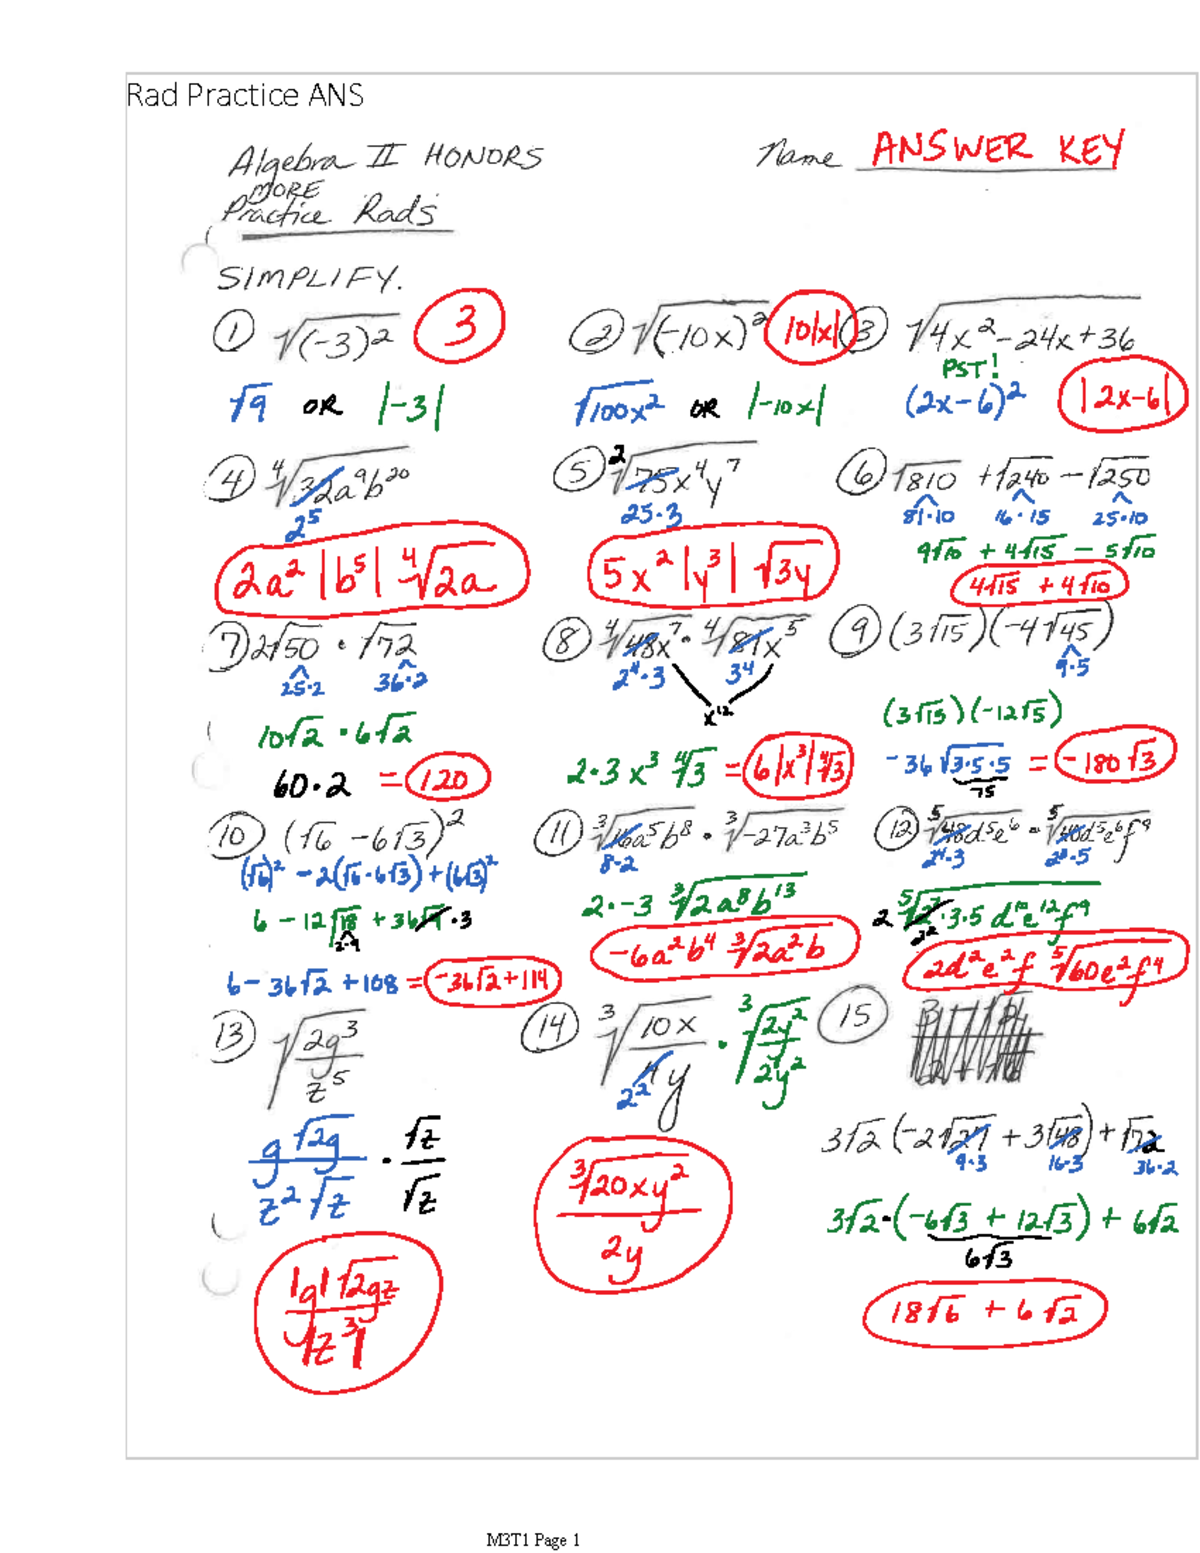 Rad Practice ANS
Algebra II HONORS
Name ANSWER KEY
MORE
Practice Rads
SIMPLIFY.
① √(-3)² 3
√9 OR |-3|
② √(-10x)² 10|x|
√100x² OR |-10x|
③ √4x²-24x+36
PST!
(2x-6)² |2x-6|
④ ⁴√32a⁹b²⁰
2⁵
2a²|b⁵| ⁴√2a
⑤ ²√75x⁴y⁷
25·3
5x²|y³| √3y
⑥ √810 + √240 - √250
81·10 16·15 25·10
9√10 + 4√15 - 5√10
4√15 + 4√10
⑦ 2√50 · √72
25·2 36·2
10√2 · 6√2
60·2 = 120
⑧ ⁴√48x⁷ · ⁴√81x⁵
2⁴·3 3⁴
x¹²
2·3 x³ ⁴√3 = 6|x³| ⁴√3
⑨ (3√15)(-4√45)
9·5
(3√15)(-12√5)
-36 √3·5·5 = -180√3
75
⑩ (√6 - 6√3)²
(√6)² - 2(√6·6√3) + (6√3)²
6 - 12√18 + 36√9·3
2·9
6 - 36√2 + 108 = -36√2 + 114
⑪ ³√16a⁵b⁸ · ³√-27a³b⁵
8·2
2·-3 ³√2a⁸b¹³
-6a²b⁴ ³√2a²b
⑫ ⁵√48d⁵e⁶ · ⁵√40d⁵e⁶f⁹
2⁴·3 2³·5
2 ⁵√2⁷·3·5 d¹⁰e¹²f⁹
2²
2d²e²f ⁵√60e²f⁴
⑬ √2g³/z⁵
g√2g/z²√z · √z/√z
|g|√2gz/|z³|
⑭ ³√10x/4y · ³√2y²/2y²
2²
³√20xy²/2y
⑮
3√2 (-2√27 + 3√48) + √72
9·3 16·3 36·2
3√2·(-6√3 + 12√3) + 6√2
6√3
18√6 + 6√2
M3T1 Page 1